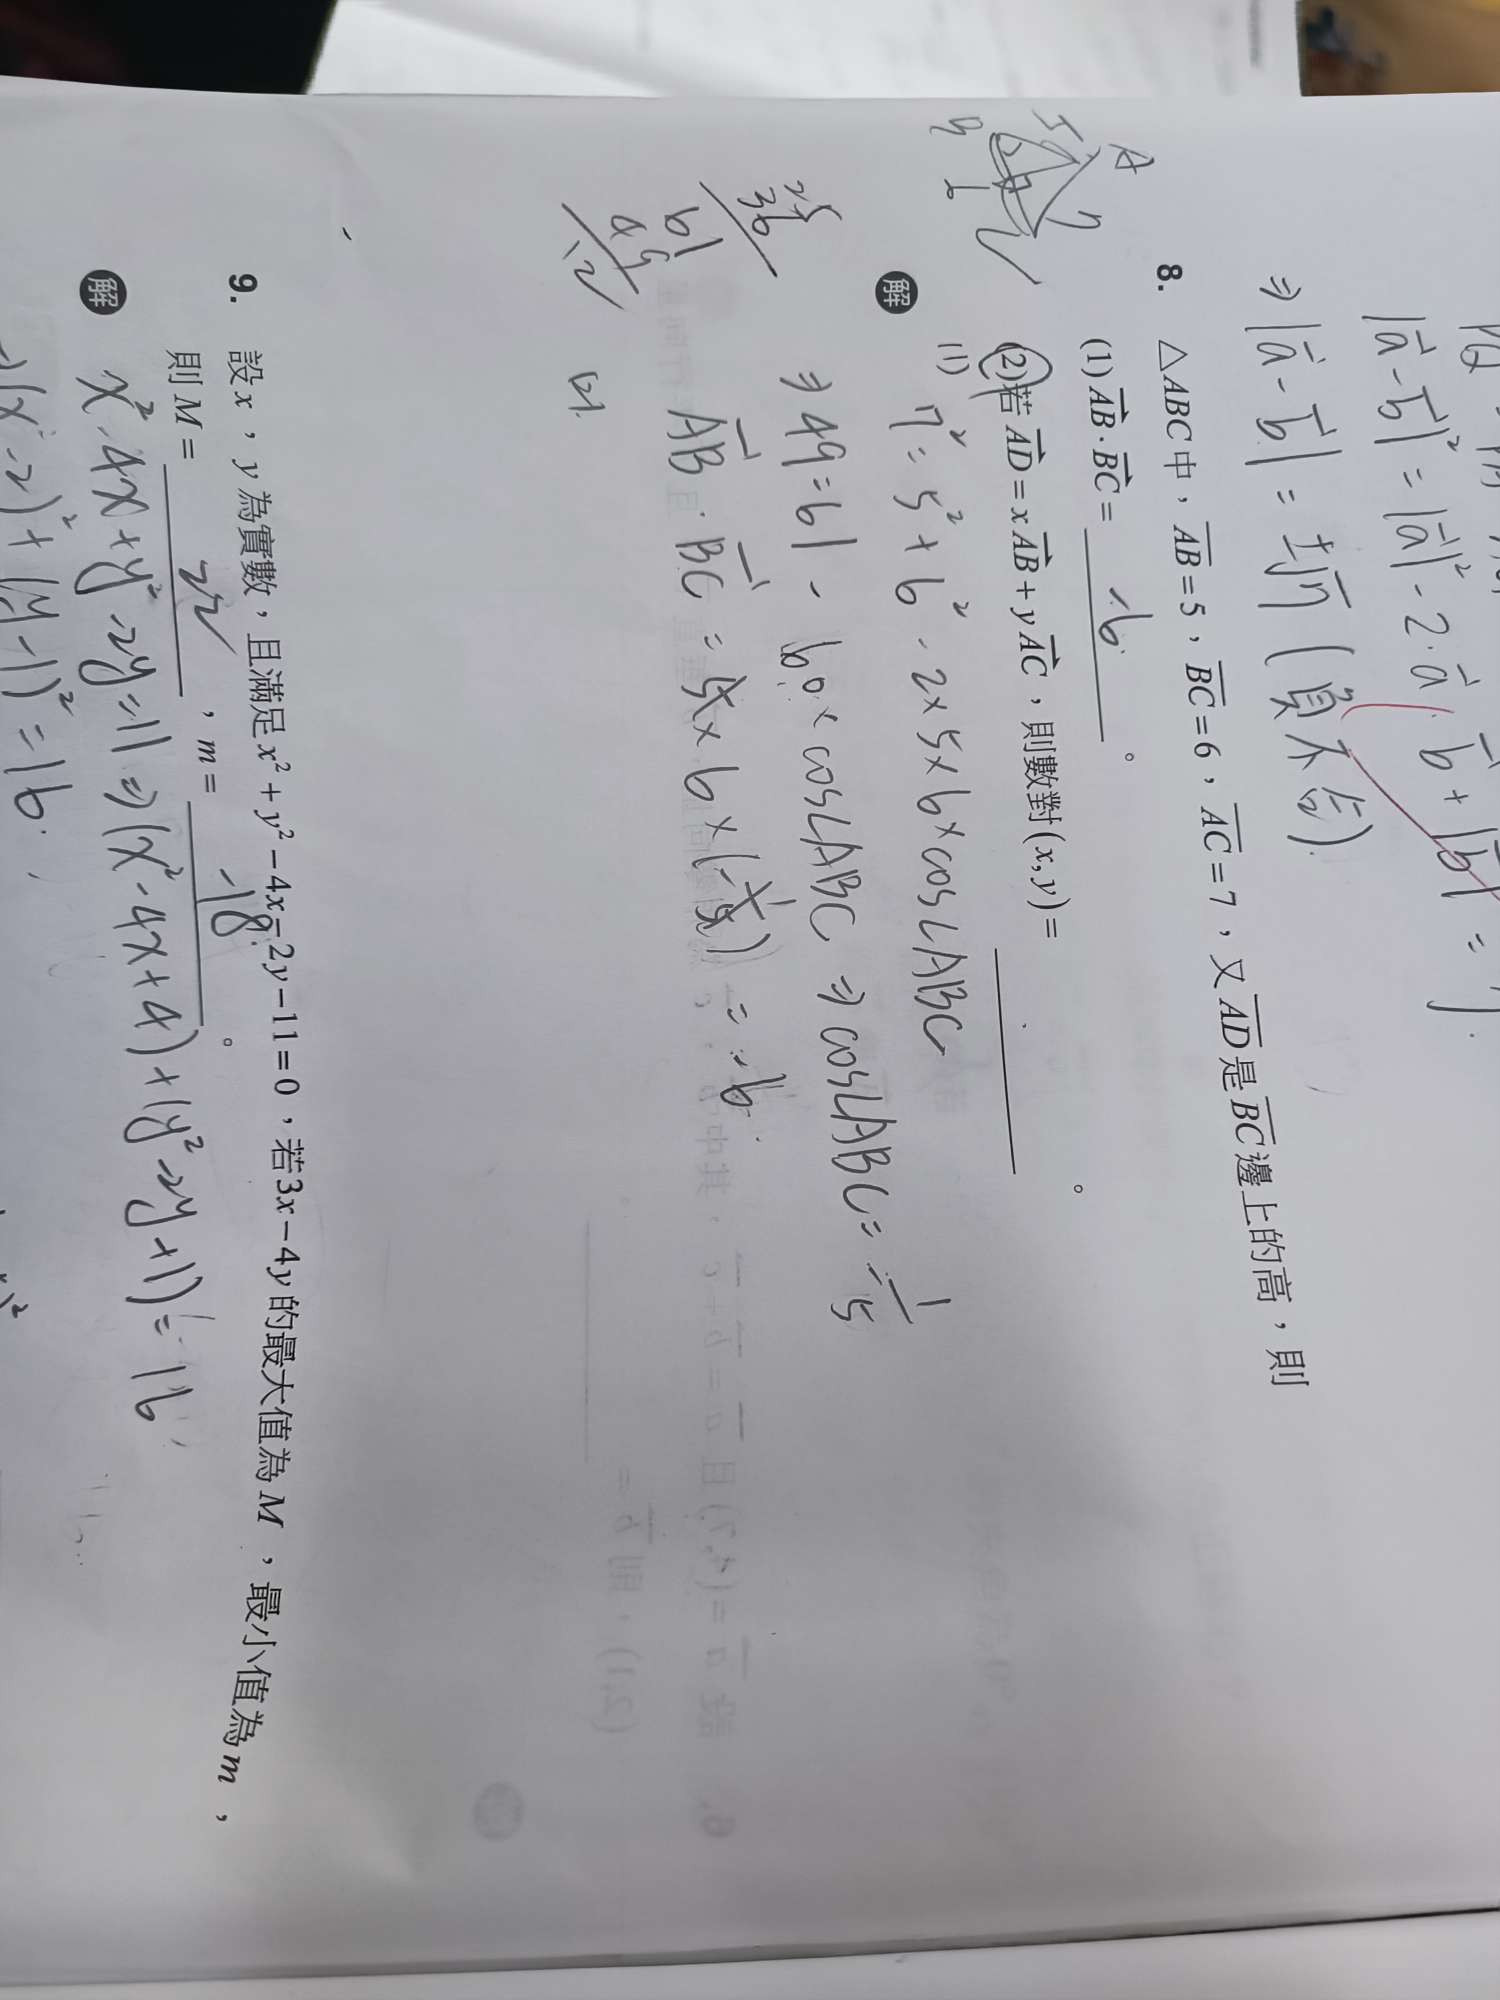 |a⃗-b⃗|² = |a⃗|² - 2·a⃗·b⃗ + |b⃗| = 7.
⇒ |a⃗-b⃗| = ±√7 (負不合).
8. △ABC中，AB=5，BC=6，AC=7，又AD是BC邊上的高，則
(1) AB·BC = -6 。
(2) 若AD=xAB+yAC，則數對(x,y)= 。
A
5
7
6
解
(1) 7²=5²+6²-2×5×6×cos∠ABC
⇒ 49=61-60×cos∠ABC ⇒ cos∠ABC=-1/5
AB·BC = 5×6×(-1/5) = -6.
(2).
25
36
61
49
12
9. 設x，y為實數，且滿足x²+y²-4x-2y-11=0，若3x-4y的最大值為M，最小值為m，
則M= 22 ，m= -18 。
解
x²-4x+y²-2y=11 ⇒ (x²-4x+4)+(y²-2y+1)=16
⇒(x-2)²+(y-1)²=16.